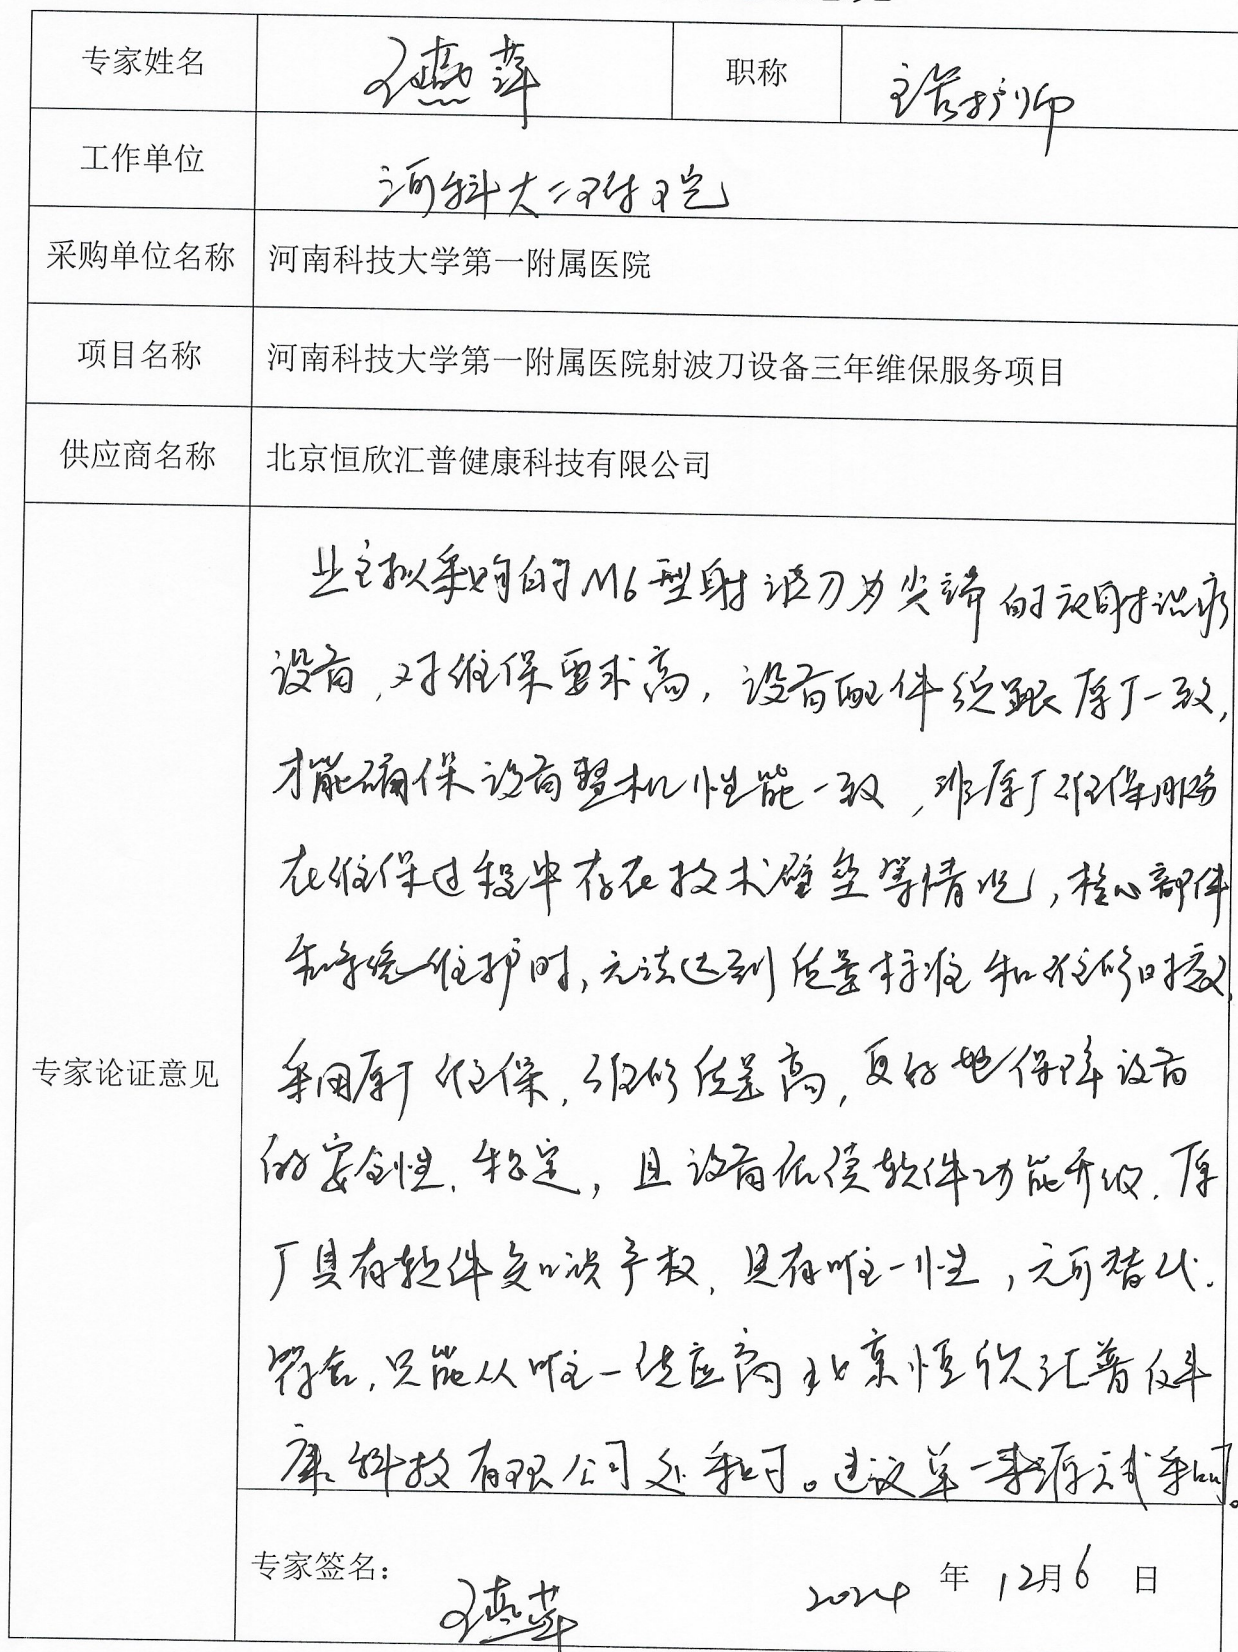 专家姓名 王燕萍 职称 主管护师
工作单位 河科大二附院
采购单位名称 河南科技大学第一附属医院
项目名称 河南科技大学第一附属医院射波刀设备三年维保服务项目
供应商名称 北京恒欣汇普健康科技有限公司
专家论证意见
业主拟采购的M6型射波刀为尖端的放射治疗
设备,对维保要求高,设备配件须跟原厂一致,
才能确保设备整机性能一致,非原厂维保服务
在维保过程中存在技术壁垒等情况,核心部件
和系统维护时,无法达到质量标准和维修时效,
采用原厂维保,维修质量高,更好地保障设备
的安全性、稳定,且设备依赖软件功能升级,原
厂具有软件知识产权,具有唯一性,无可替代.
符合,只能从唯一供应商北京恒欣汇普健
康科技有限公司处采购。建议单一来源方式采购。
专家签名: 王燕萍 2024 年 12月6 日